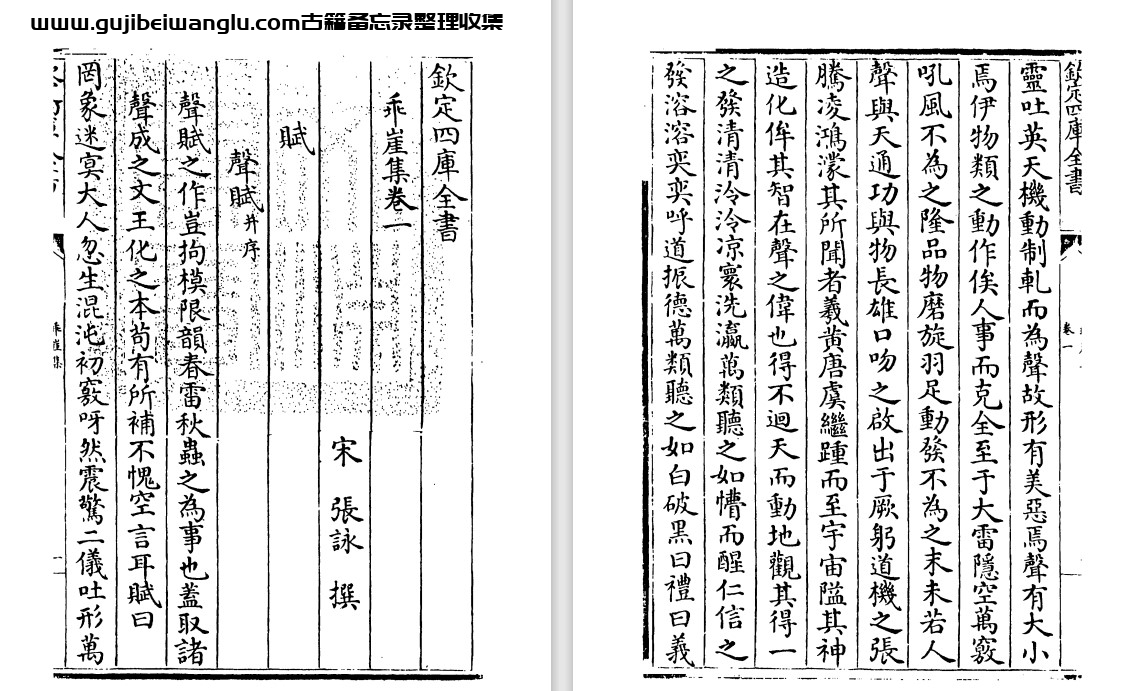 www.gujibeiwanglu.com古籍备忘录整理收集
欽定四庫全書
乖崖集卷一
宋 張詠 撰
賦
聲賦并序
聲賦之作豈拘模限韻春雷秋蟲之為事也蓋取諸
聲成之文王化之本茍有所補不愧空言耳賦曰
罔象迷冥大人忽生混沌初竅呀然震驚二儀吐形萬
乖崖集
一
欽定四庫全書
卷一
靈吐英天機動制軋而為聲故形有美惡焉聲有大小
焉伊物類之動作俟人事而克全至于大雷隱空萬竅
吼風不為之隆品物磨旋羽足動發不為之末未若人
聲與天通功與物長雄口吻之啟出于厥躬道機之張
騰凌鴻濛其所聞者羲黃唐虞繼踵而至宇宙隘其神
造化侔其智在聲之偉也得不迴天而動地觀其得一
之發清清泠泠凉寰洗瀛萬類聽之如懵而醒仁信之
發溶溶奕奕呼道振德萬類聽之如白破黑曰禮曰義